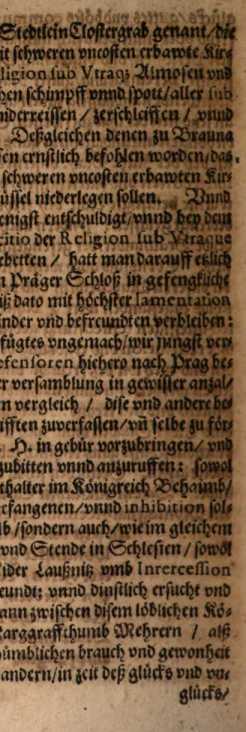 Stedtlein Clostergrab genant/ die
it schweren vncosten erbawte Kir-
ligion sub Vtraq; Almosen vnd
hen schimpff vnnd spott/aller sub
niderreissen / zerschleiffen / vnnd
Deßgleichen denen zu Brauna
sen ernstlich befohlen worden/das
schweren vncosten erbawten Kir-
üssel niederlegen sollen. Vnnd
enigst entschuldigt/vnnd bey dem
citio der Religion sub Vtraque
rbetten / hatt man darauff etzlich
n Präger Schloß in gefengkliche
iß dato mit höchster lamentation
inder vnd befreundten verbleiben:
fügtes vngemach/wir jüngst ver-
efensoren hiehero nach Prag be-
r versamblung in gewisser anzal/
n vergleich / dise vnd andere be-
ifften zuverfassen/vñ selbe zu för-
H. in gebür vorzubringen/ vnd
zubitten vnnd anzuruffen: sowol
thalter im Königreich Behaimb/
efangenen/vnnd inhibition sol-
lb/sondern auch/wie im gleichem
vnd Stende in Schlesien/sowol
ider Laußnitz vmb Inrercession
eundt: vnnd dinstlich ersucht vnd
ann zwischen disem löblichen Kö-
Marggraffthumb Mehrern / alß
hümblichen brauch vnd gewonheit
andern/in zeit deß glücks vnd vn-
glücks/